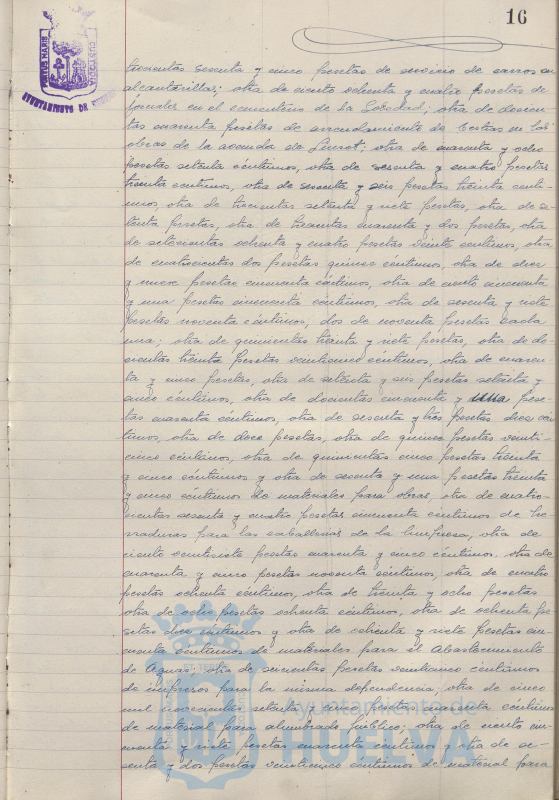 16
PORTUS MARIS ET TERRÆ CUSTODIA
AYUNTAMIENTO DE HUELVA
trescientas sesenta y cinco pesetas de servicio de carros en
alcantarillas; otra de ciento ochenta y cuatro pesetas de
jornales en el cementerio de la Soledad; otra de doscien-
tas cuarenta pesetas de arrendamiento de bestias en las
obras de la avenida de; otra de cuarenta y ocho
pesetas setenta céntimos, otra de sesenta y cuatro pesetas
treinta céntimos, otra de sesenta y seis pesetas treinta cénti-
mos, otra de trescientas setenta y siete pesetas, otra de se-
tenta pesetas, otra de trescientas cuarenta y dos pesetas, otra
de setecientas ochenta y cuatro pesetas veinte céntimos, otra
de cuatrocientas dos pesetas quince céntimos, otra de diez
y nueve pesetas cincuenta céntimos, otra de ciento cincuenta
y una pesetas cincuenta céntimos, otra de sesenta y siete
pesetas noventa céntimos, dos de noventa pesetas cada
una; otra de quinientas treinta y siete pesetas, otra de do-
cientas treinta pesetas veinticinco céntimos, otra de cuaren-
ta y cinco pesetas, otra de setenta y seis pesetas setenta y
cinco céntimos, otra de doscientas cincuenta y una pese-
tas cuarenta céntimos, otra de sesenta y tres pesetas diez cén-
timos, otra de doce pesetas, otra de quince pesetas veinti-
cinco céntimos, otra de quinientas cinco pesetas treinta
y cinco céntimos y otra de sesenta y una pesetas treinta
y cinco céntimos de materiales para obras, otra de cuatro-
cientas sesenta y cuatro pesetas cincuenta céntimos de he-
rraduras para las caballerías de la limpieza, otra de
ciento veintisiete pesetas cuarenta y cinco céntimos, otra de
cuarenta y cinco pesetas noventa céntimos, otra de cuatro
pesetas ochenta céntimos, otra de treinta y ocho pesetas
otra de ocho pesetas ochenta céntimos, otra de ochenta pe-
setas doce céntimos y otra de ochenta y siete pesetas cin-
cuenta céntimos de materiales para el Abastecimiento
de Aguas; otra de seiscientas pesetas veinticinco céntimos
de impresos para la misma dependencia; otra de cinco
mil novecientas setenta y cinco pesetas cuarenta céntimos
de material para alumbrado público; otra de ciento cin-
cuenta y siete pesetas cuarenta céntimos y otra de se-
senta y dos pesetas veinticinco céntimos de material para
Ayuntamiento de
HUELVA